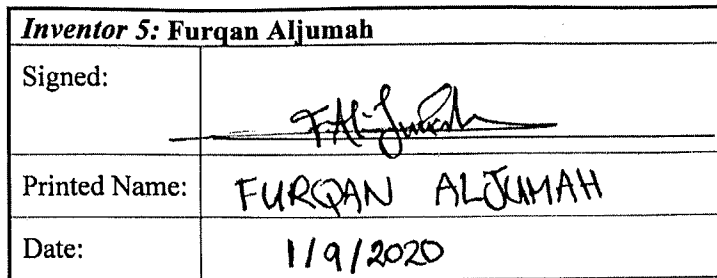 Inventor 5: Furqan Aljumah
Signed: F.Al-Jumah
Printed Name: FURQAN ALJUMAH
Date: 1/9/2020